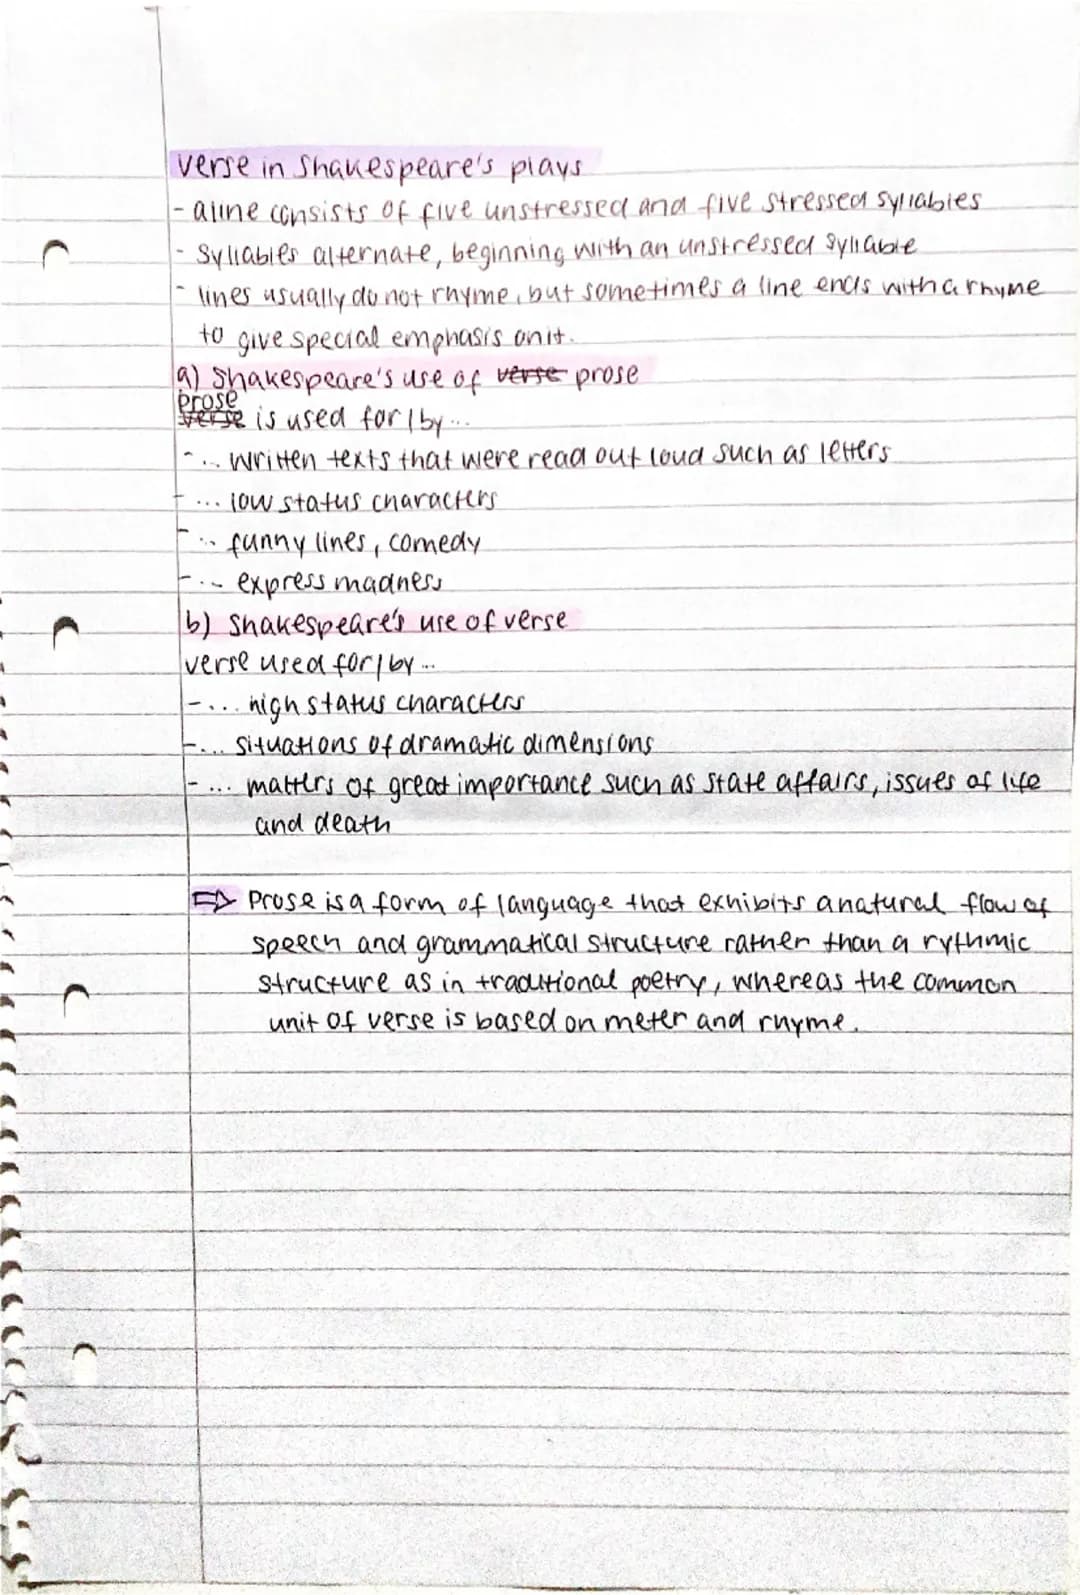 verse in Shakespeare's plays
- a line consists of five unstressed and five stressed syllables
- syllables alternate, beginning with an unstressed syllable
- lines usually do not rhyme, but sometimes a line ends with a rhyme
to give special emphasis on it.
a) Shakespeare's use of verse prose
prose
verse is used for/by...
- ... written texts that were read out loud such as letters
- ... low status characters
- ... funny lines, comedy
- ... express madness
b) Shakespeare's use of verse
verse used for/by...
- ... high status characters
- ... situations of dramatic dimensions
- ... matters of great importance such as state affairs, issues of life
and death
⇨ Prose is a form of language that exhibits a natural flow of
speech and grammatical structure rather than a rythmic
structure as in traditional poetry, whereas the common
unit of verse is based on meter and rhyme.